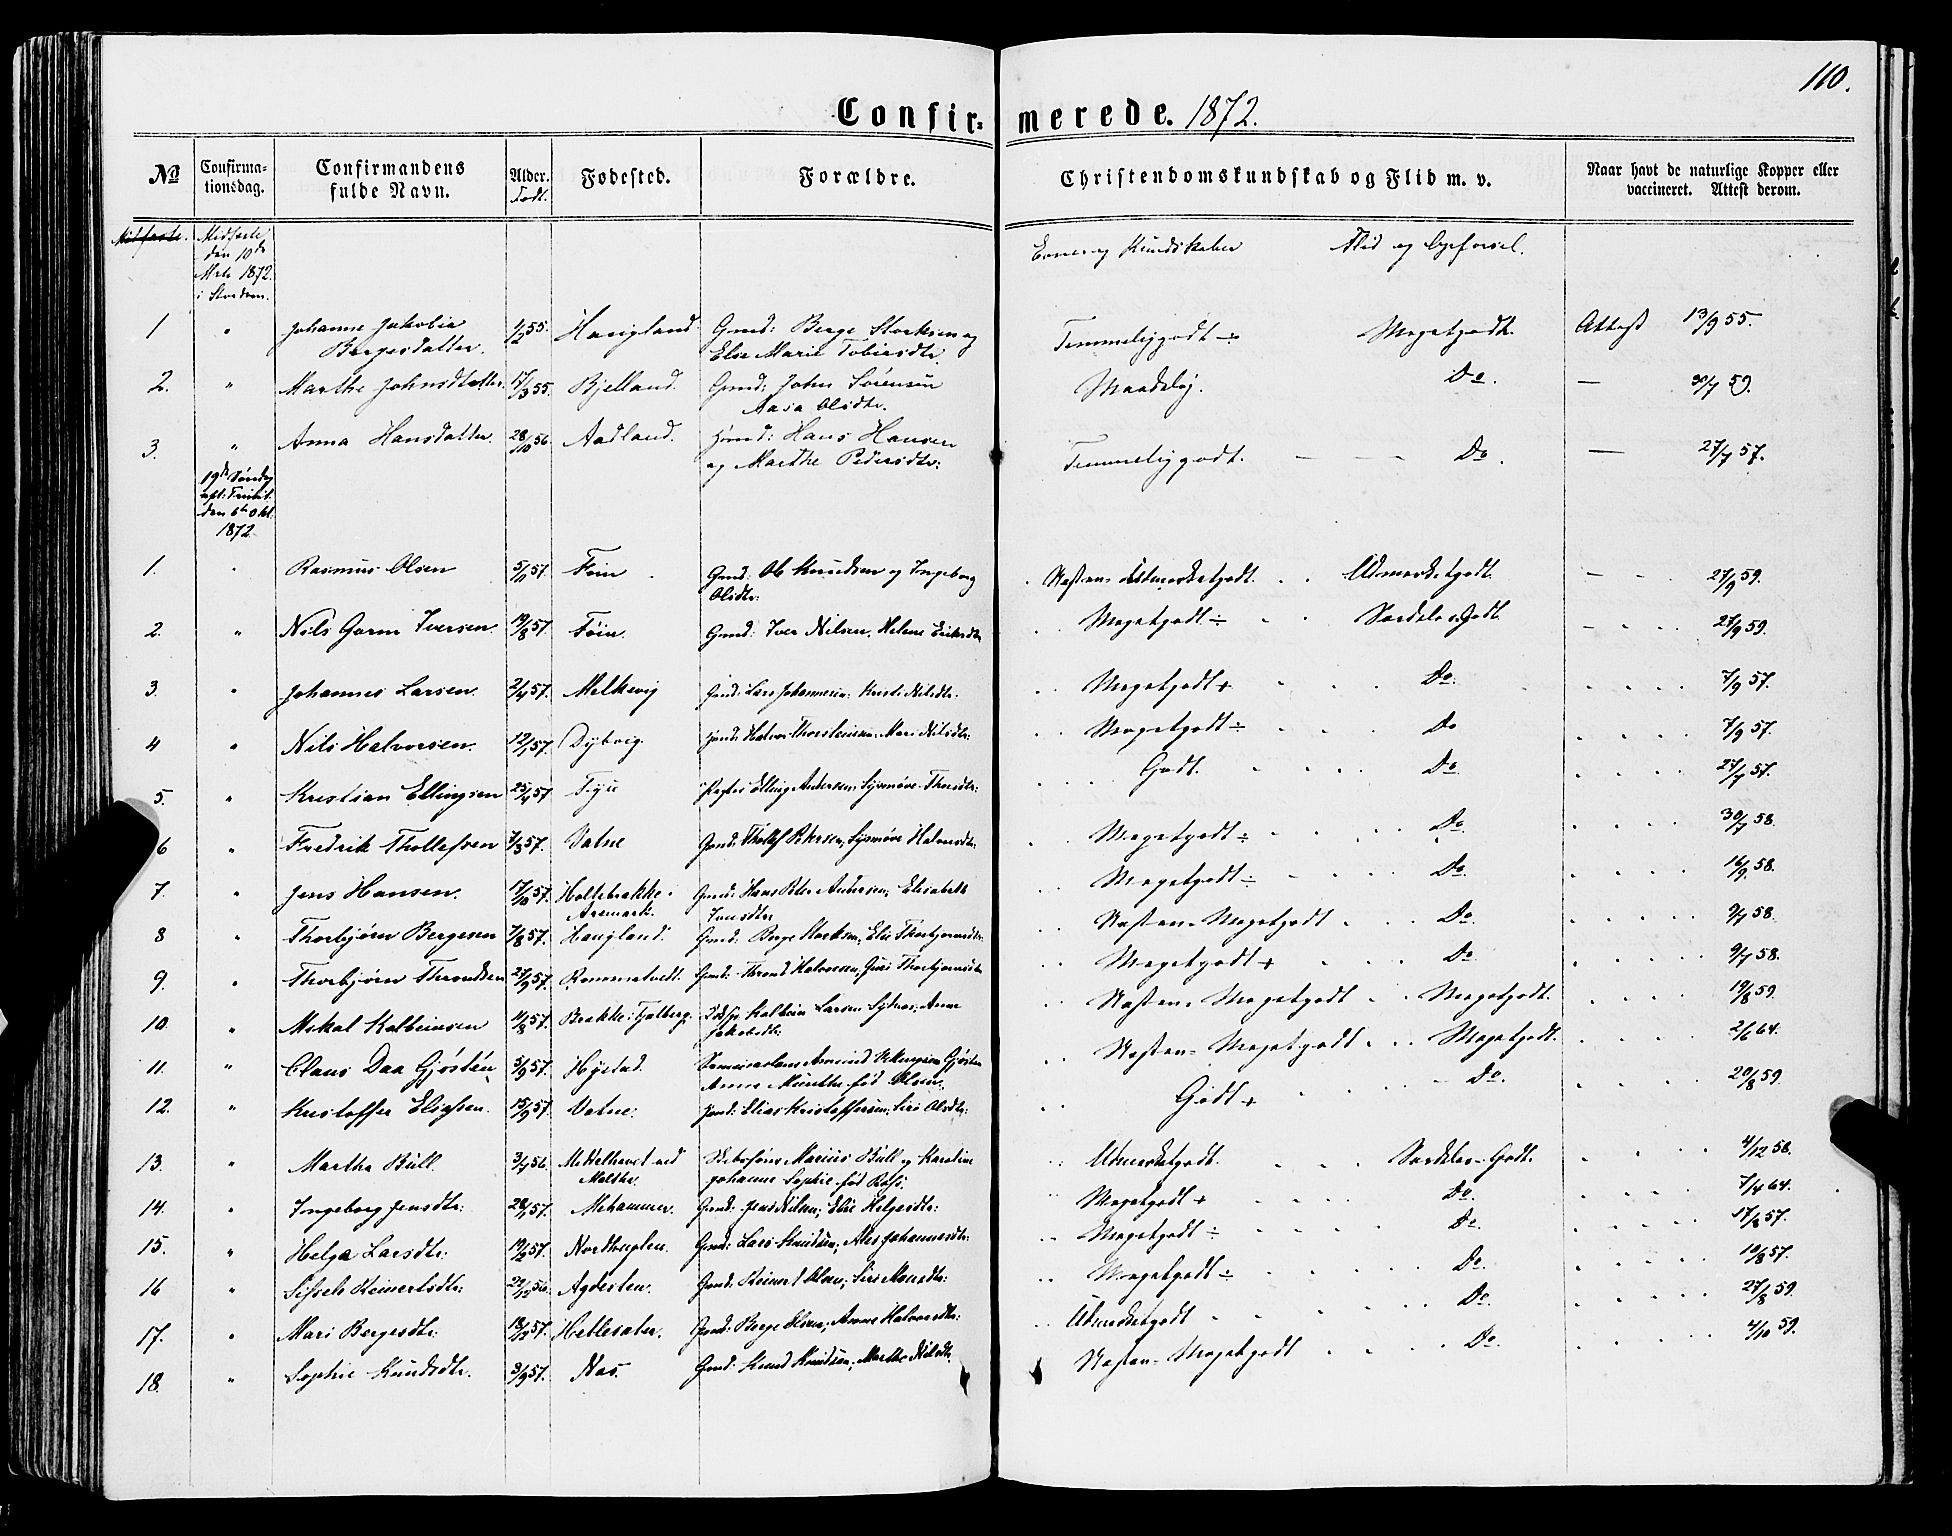 110.
Confirmerede. 1872.
No Confirmationsdag. Confirmandens fulde Navn. Alder. Født. Fødested. Forældre. Christendomskundskab og Flid m. v. Naar havt de naturlige Kopper eller vaccineret. Attest derom.
Midfaste. Midfaste den 10de Mrts 1872. i Evner og Kundskaber Flid og Opførsel.
1 " Johanne Jakobia Bergesdatter. 1/2 55. Haugland Gmd: Berge og Else Marie Tobiasdtr. Temmeliggodt ÷ Megetgodt. Attest 13/9 55.
2. " Marthe Johnsdatter. 17/3 55. Bjelland. Gmd: John Sørensen Aasa Olsdtr. Maadelig. Do. — 30/7 59.
3. " Anna Hansdatter. 28/10 56. Aadland. Hans Hansen og Marthe Pedersdtr: Temmeliggodt. — — — Do. — 27/7 57.
19de Søndag eft: Trinit. den 6te Okt. 1872.
1. " Rasmus Olsen 5/11 57. Gmd: Ole Knudsen og Ingeborg Olsdtr: Næsten Udmærketgodt. Udmærketgodt. 27/9 59.
2. " Nils Gorm Iversen. 19/8 57. Føien. Gmd: Iver Nilsen, Helene Eriksdtr Megetgodt ÷ Særdeles Godt. 27/9 59.
3. " Johannes Larsen. 2/4 57. Melkevig Gmd: Lars Johannesen, Nilsdtr. Megetgodt + Do. 7/9 57.
4 " Nils Halvorsen. 12/1 57. Dybvig. Halvor Thorsteinsen, Mari Nilsdtr: Megetgodt ÷ Do 7/9 57.
5. " Kristian Ellingsen 25/4 57 Elling Andersen, Thorsdtr: Godt. Do. 27/7 57.
6 " Fredrik Thollefsen 7/3 57. Vatne Gmd: Thollef Halvorsdtr. Megetgodt ÷ Do. 30/7 58.
7. " Jens Hansen. 17/10 57. Aremark. Gmd: Hans Peter Andersen, Elisabeth Megetgodt ÷ Do. 16/9 58.
8 " Thorbjørn Bergesen 7/8 57. Haugland. Gmd: Berge Else Thorbjørnsdtr. Næsten-Megetgodt Do. 9/7 58.
9. " Thorbjørn Throndsen 27/9 57. Rommetvedt. Gmd: Thrond Halvorsen, Thorbjørnsdtr Megetgodt + Do. 9/7 58.
10. " Mikal Kolbeinsen 11/8 57. Brekke i Fjelberg. Kolbein Larsen Anne Jakobsdtr: Næsten-Megetgodt Megetgodt. 19/8 59.
11. " Claus Daa Gjøstén 3/9 57. Hystad. Gjøsten Anne Marethe fød Olsen. Næsten-Megetgodt Megetgodt. 2/6 64.
12. " Kristoffer Eliassen. 15/9 57. Vatne. Elias Kristoffersen, Siri Olsdtr: Godt + Do. 20/8 59.
13. " Marthe Bull. 3/4 56. Middelhavet ved Malta. Marius Bull og Karoline Johanne Sophie fød Udmærketgodt. Særdeles-Godt. 4/12 58.
14. " Ingeborg Jensdtr: 28/1 57. Mehammer. Gmd: Jens Nilsen, Else Helgesdtr: Megetgodt + Do. 7/4 64.
15. " Helga Larsdtr: 19/2 57. Nordhuglen. Gmd: Lars Knudsen, Johannesdtr: Megetgodt ÷ Do. 17/8 57.
16 " Reinertsdtr: 22/12 56. Agdesten. Gmd: Reinert Olsen, Siri Monsdtr: Megetgodt ÷ Do. 10/8 57.
17. " Mari Bergesdtr: 18/2 57. Hellesæter. Gmd: Berge Olsen, Anne Halvorsdtr: Udmærketgodt Do. 27/8 59.
18. " Sophie Knudsdtr. 3/9 57. Næs. Gmd: Knud Knudsen, Marthe Nilsdtr. Næsten-Megetgodt Do. 4/10 59.